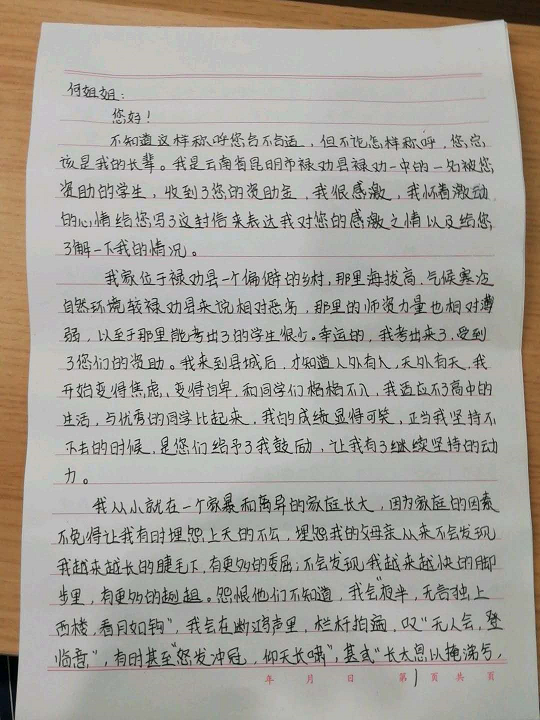 何姐姐：
您好！
不知道这样称呼您合不合适，但不论怎样称呼，您总
该是我的长辈。我是云南省昆明市禄劝县禄劝一中的一名被您
资助的学生，收到了您的资助金，我很感激，我怀着激动
的心情给您写了这封信来表达我对您的感激之情以及给您
了解一下我的情况。
我家位于禄劝县一个偏僻的乡村，那里海拔高，气候寒冷
自然环境较禄劝县来说相对恶劣，那里的师资力量也相对薄
弱，以至于那里能考出了的学生很少。幸运的，我考出来了，受到
了您们的资助。我来到县城后，才知道人外有人，天外有天，我
开始变得焦虑，变得自卑，和同学们格格不入，我适应不了高中的
生活，与优秀的同学比起来，我的成绩显得可笑，正当我坚持不
下去的时候，是您们给予了我鼓励，让我有了继续坚持的动
力。
我从小就在一个家暴和离异的家庭长大，因为家庭的因素
不免得让我有时埋怨上天的不公，埋怨我的父母亲从来不会发现
我越来越长的睫毛下，有更多的委屈；不会发现我越来越快的脚
步里，有更多的趔趄。怨恨他们不知道，我会“夜半，无言独上
西楼，看月如钩”，我会在断鸿声里，栏杆拍遍，叹“无人会，登
临意”，有时甚至“怒发冲冠，仰天长啸”，甚或“长太息以掩涕兮，
年 月 日 第1页共 页